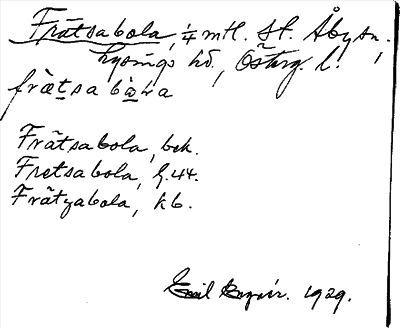 Frätsabola, 1/4 mtl. St. Åby sn,
Lysings hd., Österg. l.
frätsabola
Frätsabola, bek.
Fretsabola, G.44.
Frätzabola, kb.
Emil 1929.